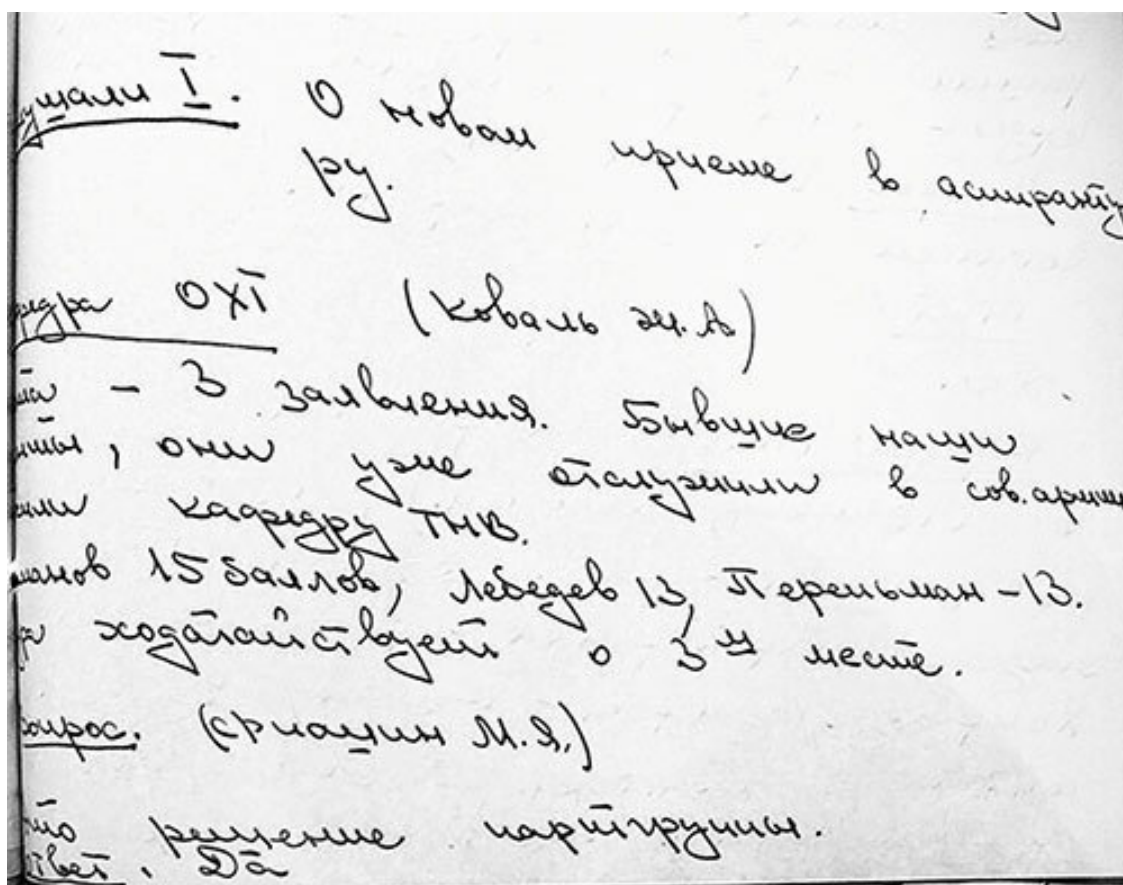 ушали I. О новом приеме в аспиранту
ру.
федра ОХТ (Коваль Ж.А)
та - 3 заявления. Бывшие наши
они уже отслужили в сов. армии
кафедру ТНВ.
манов 15 баллов, Лебедев 13, Перельман - 13.
ра ходатайствует о 3м месте.
опрос. (Фиошин М.Я.)
это решение партгруппы.
ответ. Да